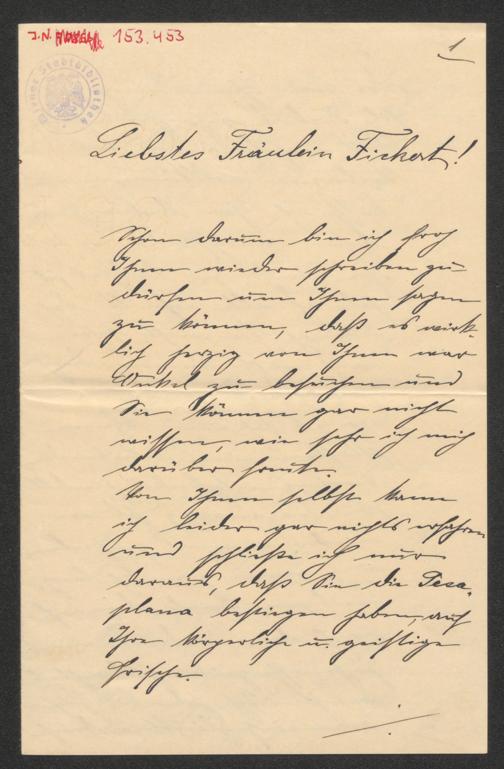 J.N. 153.453
1
Wiener Stadtbibliothek
Liebstes Fräulein Fickert!
Schon darum bin ich froh
Ihnen wieder schreiben zu
dürfen um Ihnen sagen
zu können, daß es wirk-
lich herzig von Ihnen war
Onkel zu besuchen und
Sie können gar nicht
wissen, wie sehr ich mich
darüber freute.
Von Ihnen selbst kann
ich leider gar nichts erfahren
und schließe ich nur
daraus, daß Sie die Scesa-
plana bestiegen haben, auf
Ihre körperliche u. geistige
Frische.